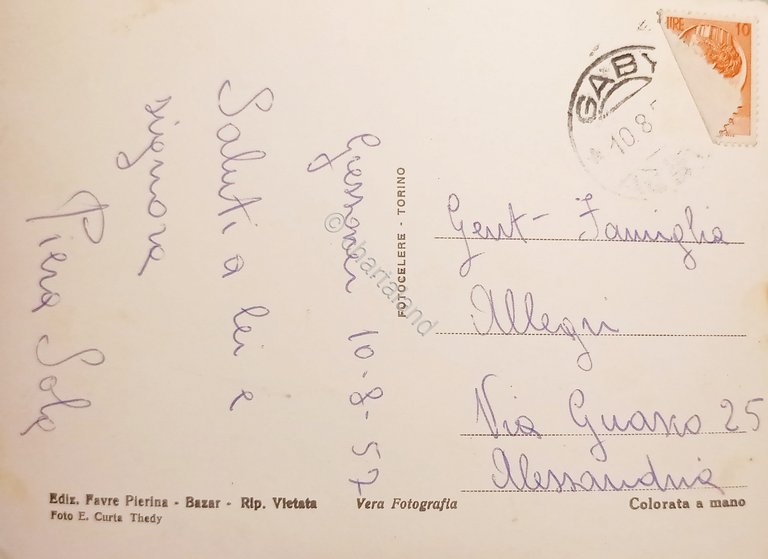 Gressoney 10-8-57
Saluti a lei e
signora
Piera Sola
FOTOCELERE - TORINO
GABY
10.8.5
LIRE 10
Gent- Famiglia
Allegri
Via Guasco 25
Alessandria
Ediz. Favre Pierina - Bazar - Rip. Vietata
Foto E. Curta Thedy
Vera Fotografia
Colorata a mano